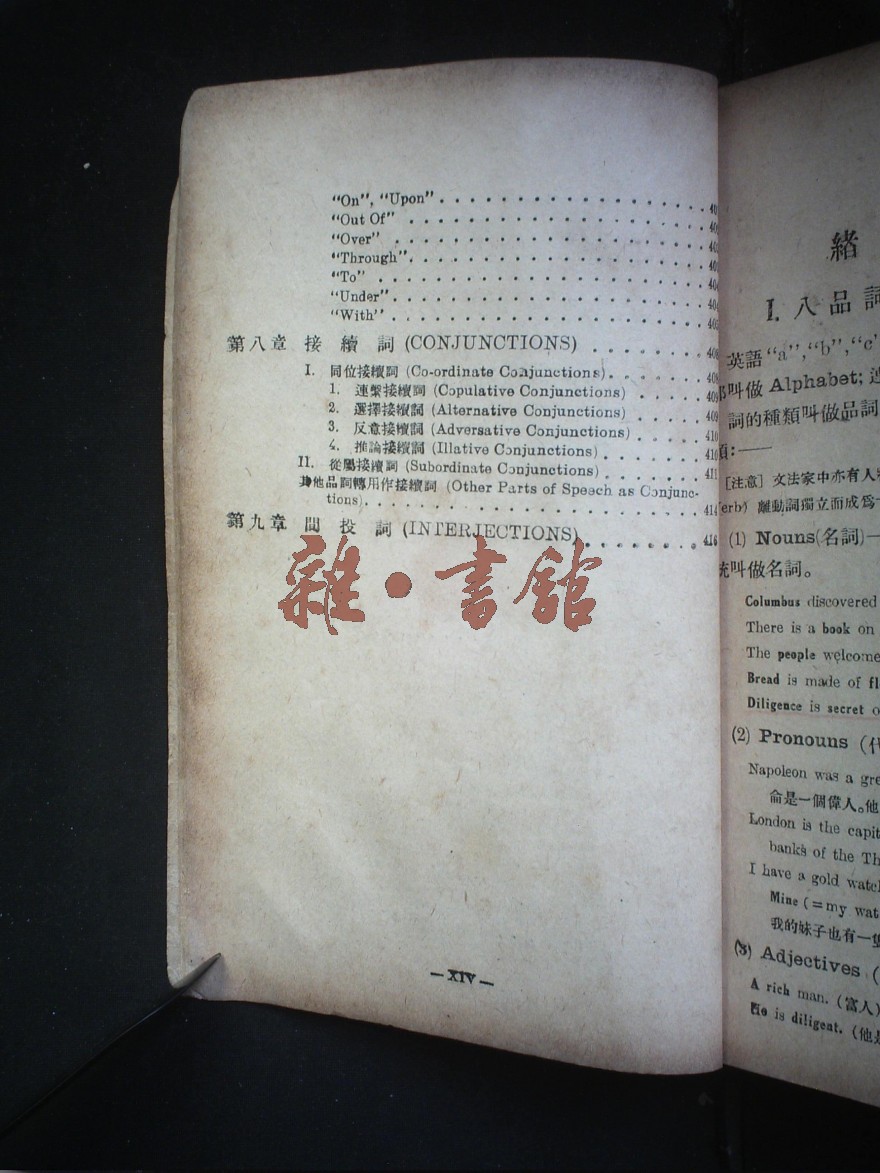 "On", "Upon"
"Out Of"
"Over"
"Through"
"To"
"Under"
"With"
第八章 接續詞 (CONJUNCTIONS) 408
I. 同位接續詞 (Co-ordinate Conjunctions) 408
1. 連繫接續詞 (Copulative Conjunctions) 409
2. 選擇接續詞 (Alternative Conjunctions) 409
3. 反意接續詞 (Adversative Conjunctions) 410
4. 推論接續詞 (Illative Conjunctions) 410
II. 從屬接續詞 (Subordinate Conjunctions) 411
其他品詞轉用作接續詞 (Other Parts of Speech as Conjunc-
tions) 414
第九章 間投詞 (INTERJECTIONS) 416
雜·書館
— XIV —
緒
I. 八品詞
英語 "a", "b", "c"
叫做 Alphabet;
詞的種類叫做品詞
項:——
[注意] 文法家中亦有人
erb) 離動詞獨立而成爲
(1) Nouns(名詞)—
統叫做名詞。
Columbus discovered
There is a book on
The people welcome
Bread is made of
Diligence is secret
(2) Pronouns (代
Napoleon was a
俞是一個偉人。他
London is the
banks of the
I have a gold
Mine (=my
我的妹子也有一隻
(3) Adjectives (
A rich man. (富人)
He is diligent. (他是